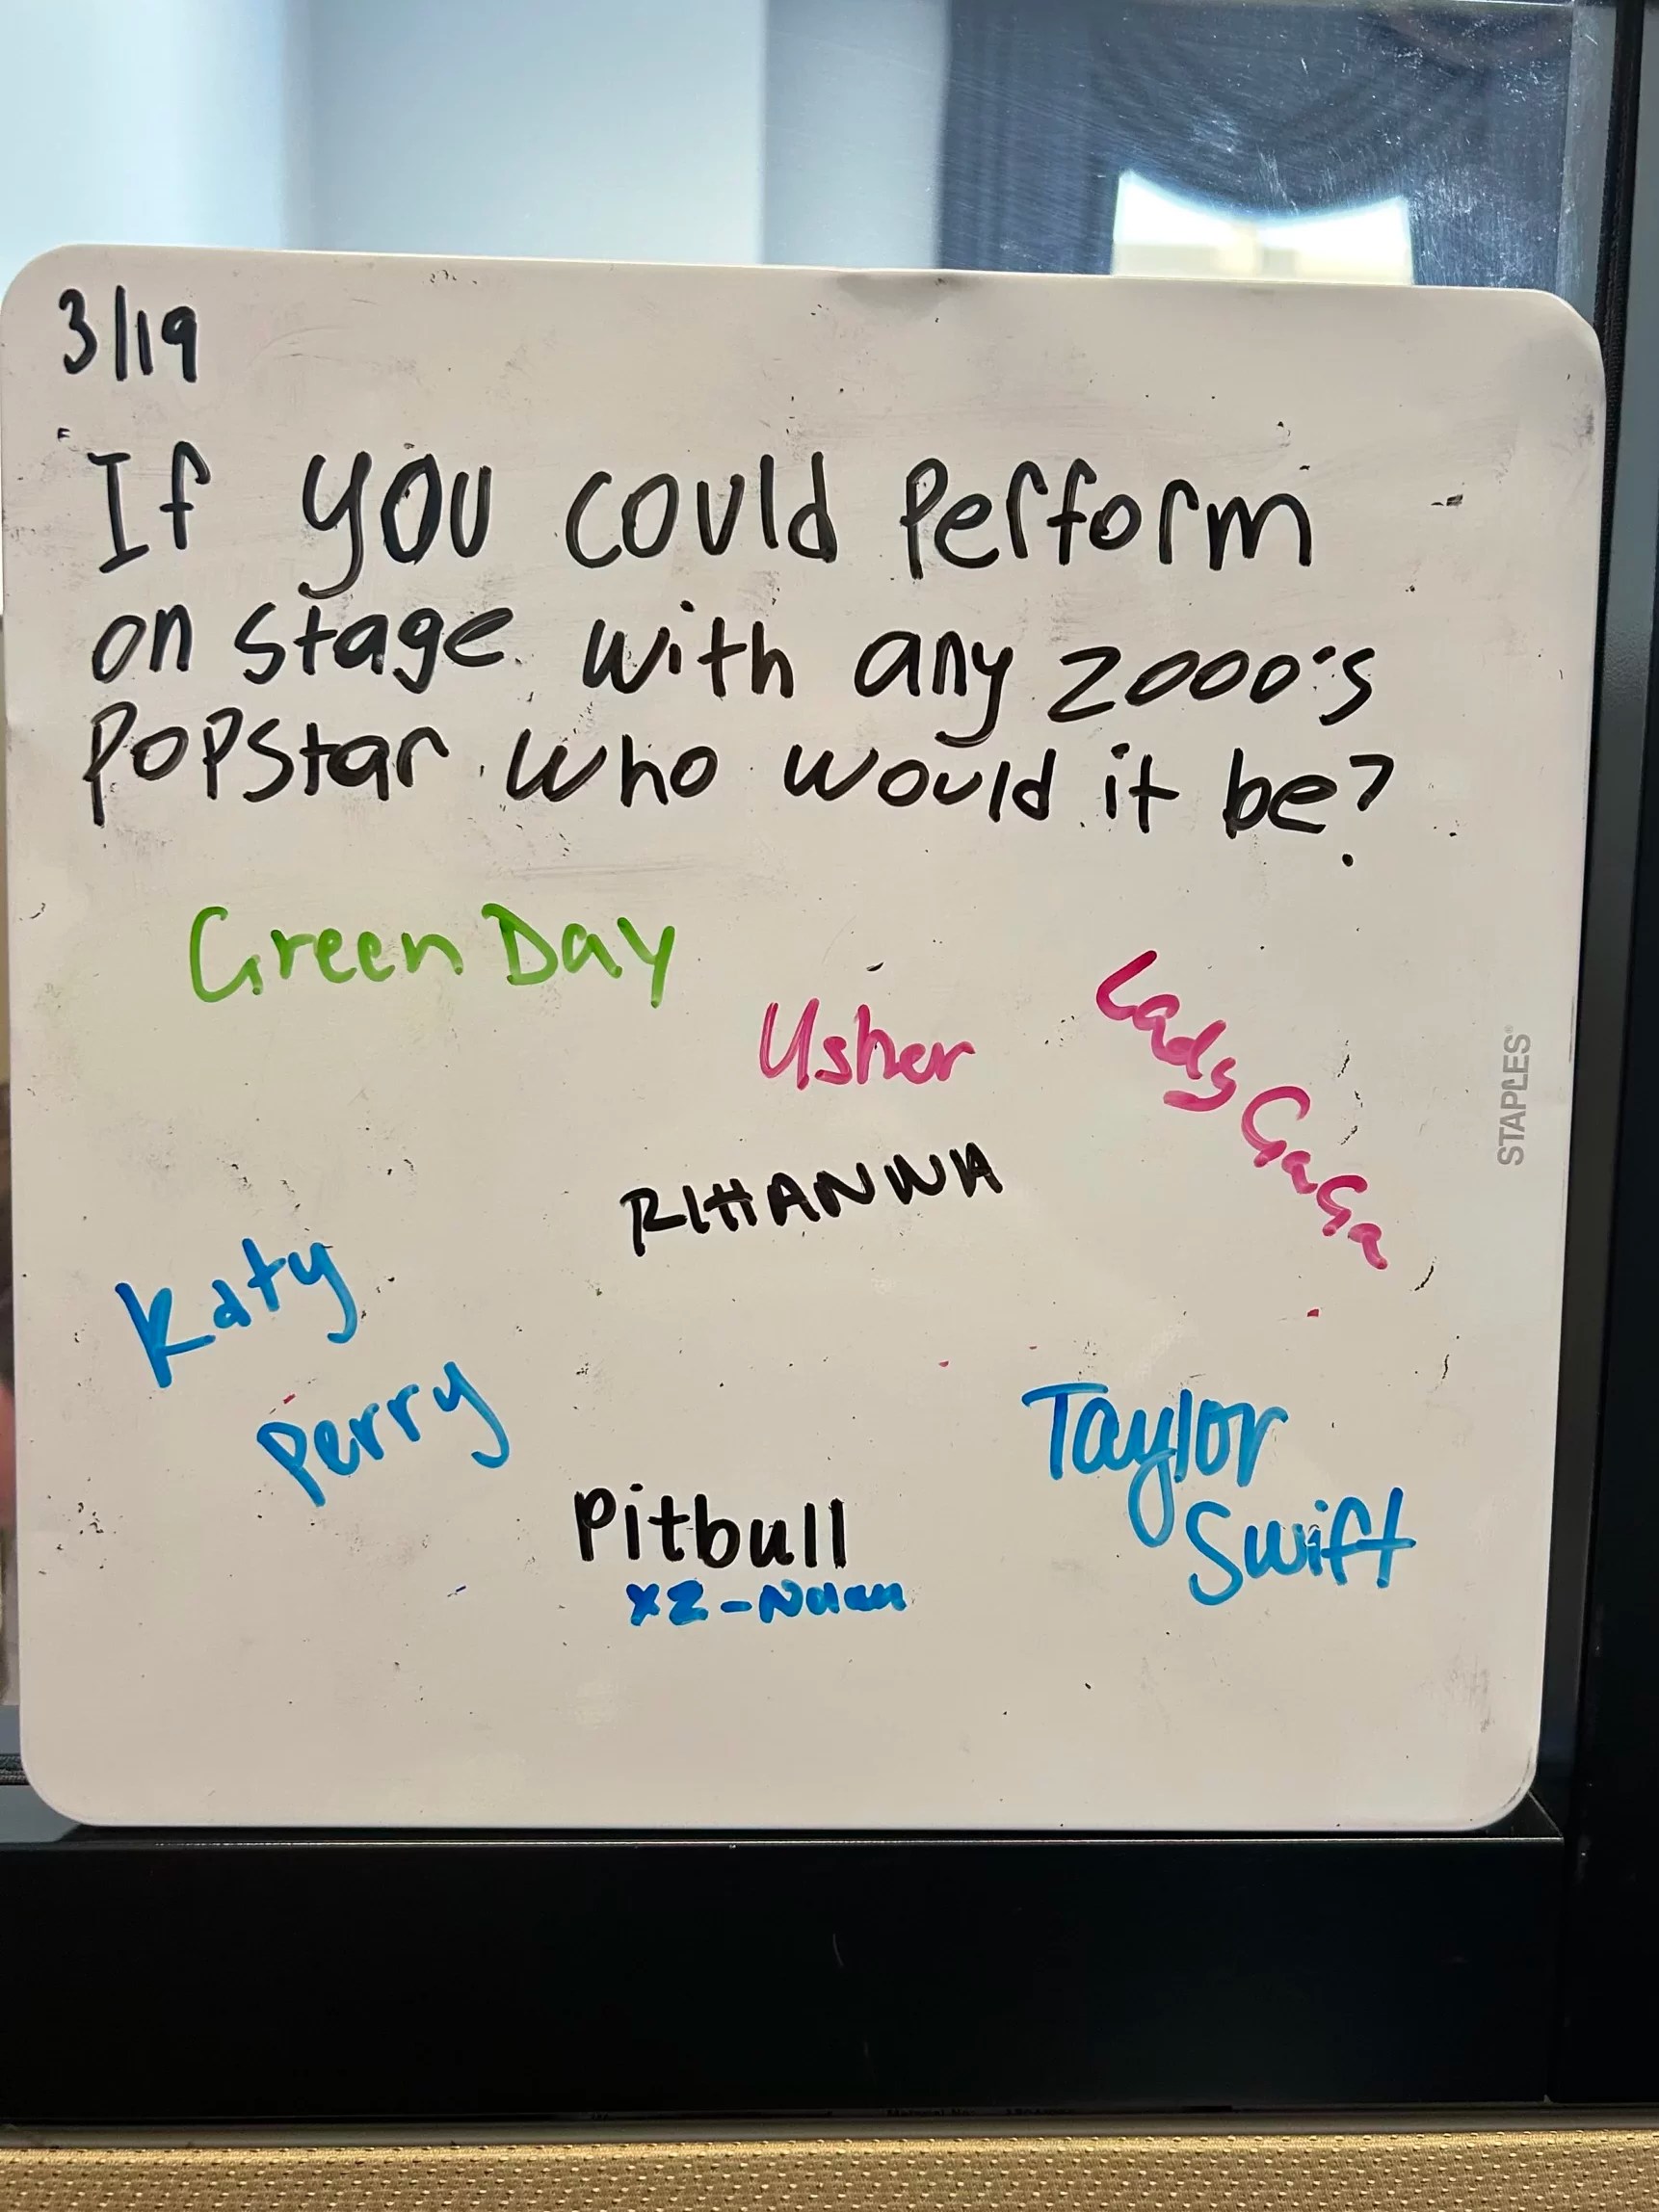 3/19
If you could perform
on stage with any 2000's
Popstar who would it be?
Green Day
Usher
Lady GaGa
RIHANNA
Katy
Perry
Taylor
Swift
Pitbull
x2 -
STAPLES